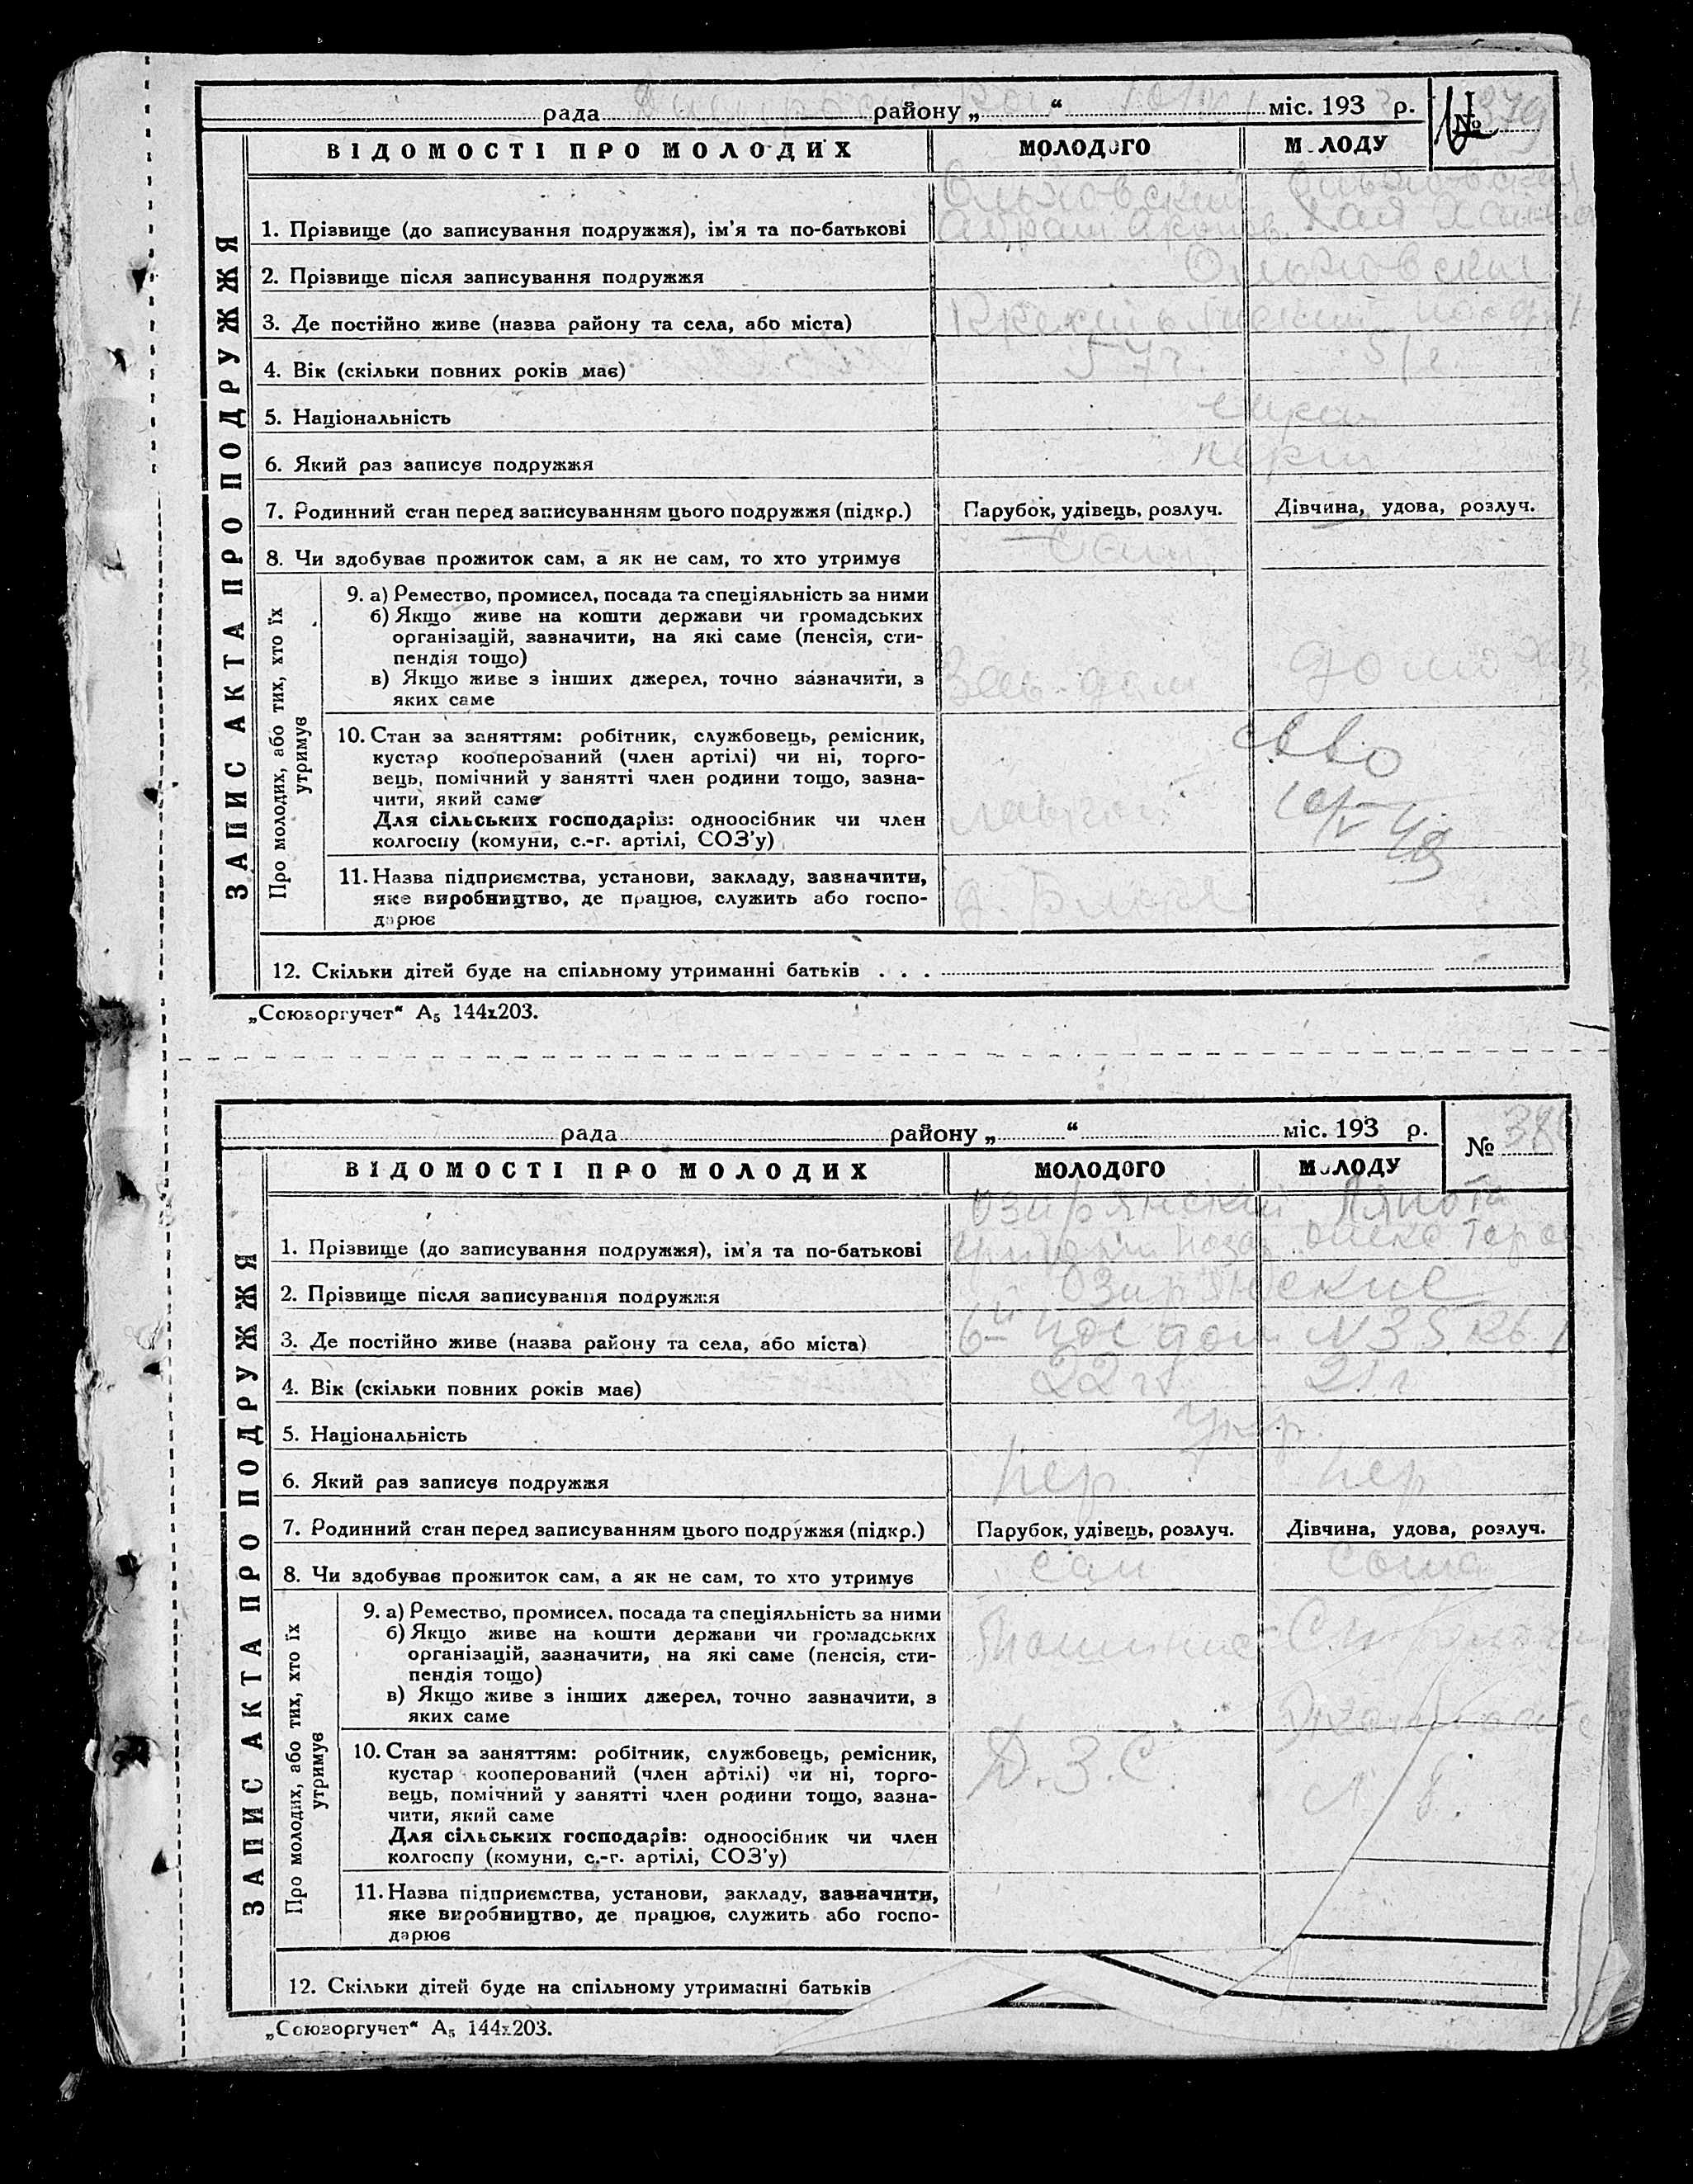 рада району „ “ міс. 193 р. № 379
ВІДОМОСТІ ПРО МОЛОДИХ МОЛОДОГО МОЛОДУ
ЗАПИС АКТА ПРО ПОДРУЖЖЯ
Ольховский
1. Прізвище (до записування подружжя), ім’я та по-батькові Абрам Хая
2. Прізвище після записування подружжя Ольховский
3. Де постійно живе (назва району та села, або міста)
4. Вік (скільки повних років має) 57 г. 51 г
5. Національність евреи
6. Який раз записує подружжя перши
7. Родинний стан перед записуванням цього подружжя (підкр.) Парубок, удівець, розлуч. Дівчина, удова, розлуч.
8. Чи здобуває прожиток сам, а як не сам, то хто утримує сам
Про молодих, або тих, хто їх утримує
9. а) Ремество, промисел, посада та спеціяльність за ними
б) Якщо живе на кошти держави чи громадських
організацій, зазначити, на які саме (пенсія, сти-
пендія тощо)
в) Якщо живе з інших джерел, точно зазначити, з
яких саме
10. Стан за заняттям: робітник, службовець, ремісник,
кустар кооперований (член артілі) чи ні, торго-
вець, помічний у занятті член родини тощо, зазна-
чити, який саме
Для сільських господарів: одноосібник чи член
колгоспу (комуни, с.-г. артілі, СОЗ’у)
11. Назва підприємства, установи, закладу, зазначити,
яке виробництво, де працює, служить або госпо-
дарює
12. Скільки дітей буде на спільному утриманні батьків . . .
„Союзоргучет“ А₅ 144х203.
рада району „ “ міс. 193 р. № 38
ВІДОМОСТІ ПРО МОЛОДИХ МОЛОДОГО МОЛОДУ
ЗАПИС АКТА ПРО ПОДРУЖЖЯ
Озирянский Ляпота
1. Прізвище (до записування подружжя), ім’я та по-батькові
2. Прізвище після записування подружжя Озирянские
3. Де постійно живе (назва району та села, або міста) 6й пос дом N 35 кв 1
4. Вік (скільки повних років має) 22 г 21 г
5. Національність укр.
6. Який раз записує подружжя пер пер
7. Родинний стан перед записуванням цього подружжя (підкр.) Парубок, удівець, розлуч. Дівчина, удова, розлуч.
8. Чи здобуває прожиток сам, а як не сам, то хто утримує сам сама
Про молодих, або тих, хто їх утримує
9. а) Ремество, промисел, посада та спеціяльність за ними
б) Якщо живе на кошти держави чи громадських
організацій, зазначити, на які саме (пенсія, сти-
пендія тощо)
в) Якщо живе з інших джерел, точно зазначити, з
яких саме
10. Стан за заняттям: робітник, службовець, ремісник, Д.З.С.
кустар кооперований (член артілі) чи ні, торго-
вець, помічний у занятті член родини тощо, зазна-
чити, який саме
Для сільських господарів: одноосібник чи член
колгоспу (комуни, с.-г. артілі, СОЗ’у)
11. Назва підприємства, установи, закладу, зазначити,
яке виробництво, де працює, служить або госпо-
дарює
12. Скільки дітей буде на спільному утриманні батьків
„Союзоргучет“ А₅ 144х203.